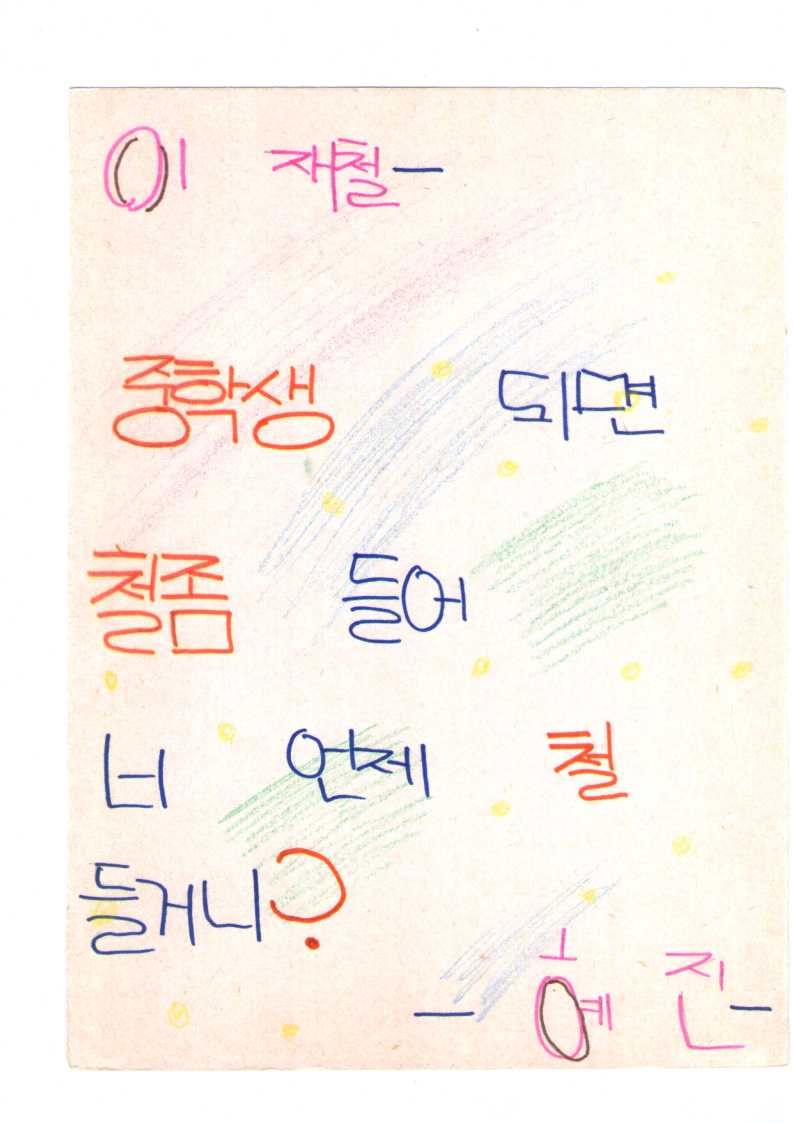 이 재철 —
중학생 되면
철좀 들어
너 언제 철
들거니?
— 혜 진 —